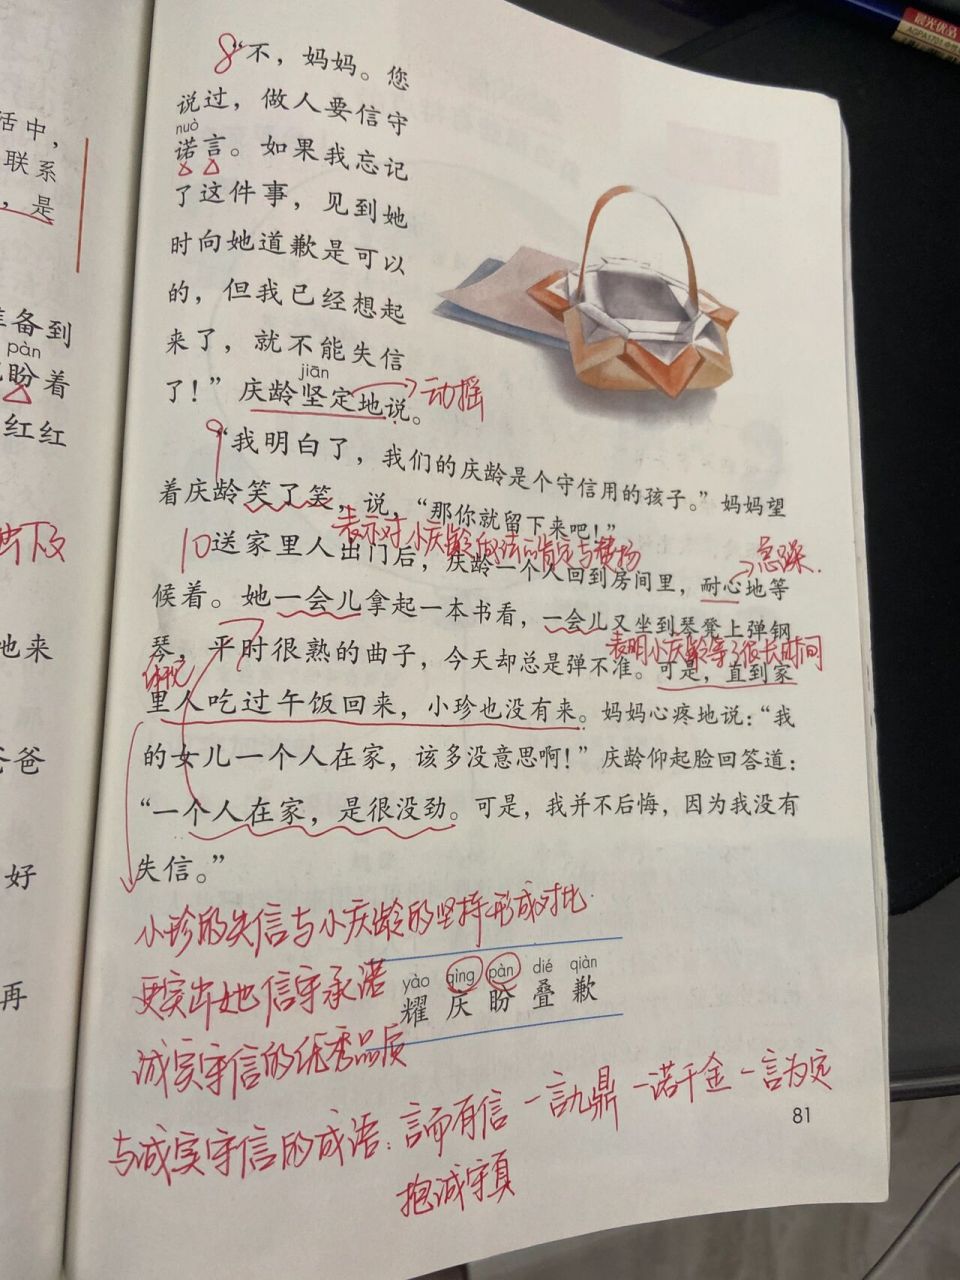 晨光优品
活中,
联系
,是
准备到
pàn
盼着
红红
地来
爸爸
好
再
8
“不,妈妈。您
说过,做人要信守
nuò
诺言。如果我忘记
了这件事,见到她
时向她道歉是可以
的,但我已经想起
来了,就不能失信
jiān
了!”庆龄坚定地说。
动摇
9
“我明白了,我们的庆龄是个守信用的孩子。”妈妈望
着庆龄笑了笑,说,“那你就留下来吧!”
表示对小庆龄的做法的肯定与赞扬
急躁.
10
送家里人出门后,庆龄一个人回到房间里,耐心地等
候着。她一会儿拿起一本书看,一会儿又坐到琴凳上弹钢
琴,平时很熟的曲子,今天却总是弹不准。可是,直到家
表明小庆龄等了很长时间
里人吃过午饭回来,小珍也没有来。妈妈心疼地说:“我
的女儿一个人在家,该多没意思啊!”庆龄仰起脸回答道:
“一个人在家,是很没劲。可是,我并不后悔,因为我没有
失信。”
小珍的失信与小庆龄的坚持形成对比.
更突出她信守承诺
诚实守信的优秀品质
yào qìng pàn dié qiàn
耀 庆 盼 叠 歉
与诚实守信的成语:言而有信 一言九鼎 一诺千金 一言为定
抱诚守真
81